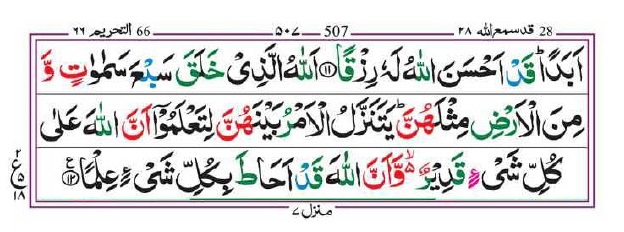 28 قدسمع اللّٰه ٢٨ 507 ٥٠٧ 66 التحريم ٦٦
اَبَدًا ؕ قَدْ اَحْسَنَ اللّٰهُ لَهٗ رِزْقًا ﴿۱۱﴾ اَللّٰهُ الَّذِىْ خَلَقَ سَبْعَ سَمٰوٰتٍ وَّ
مِنَ الْاَرْضِ مِثْلَهُنَّ ؕ يَتَنَزَّلُ الْاَمْرُ بَيْنَهُنَّ لِتَعْلَمُوْۤا اَنَّ اللّٰهَ عَلٰى
كُلِّ شَىْءٍ قَدِيْرٌ ۙ وَّاَنَّ اللّٰهَ قَدْ اَحَاطَ بِكُلِّ شَىْءٍ عِلْمًا ﴿۱۲﴾ ع
٢
ع
٥
١٨
منزل ٧